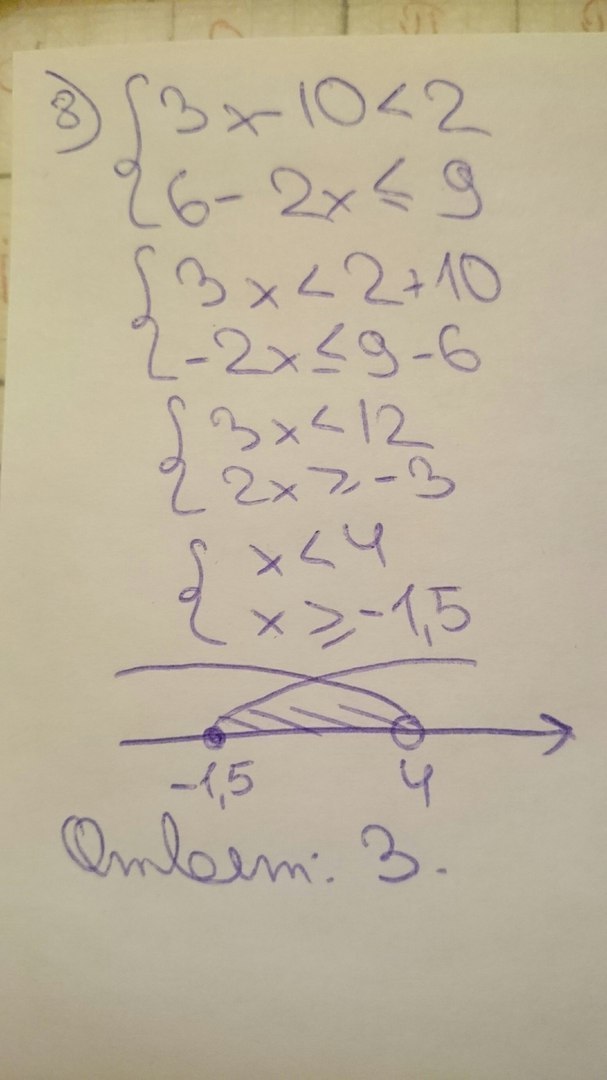 8) { 3x-10<2
6-2x≤9
{ 3x<2+10
-2x≤9-6
{ 3x<12
2x≥-3
{ x<4
x≥-1,5
-1,5 4
Ответ: 3.